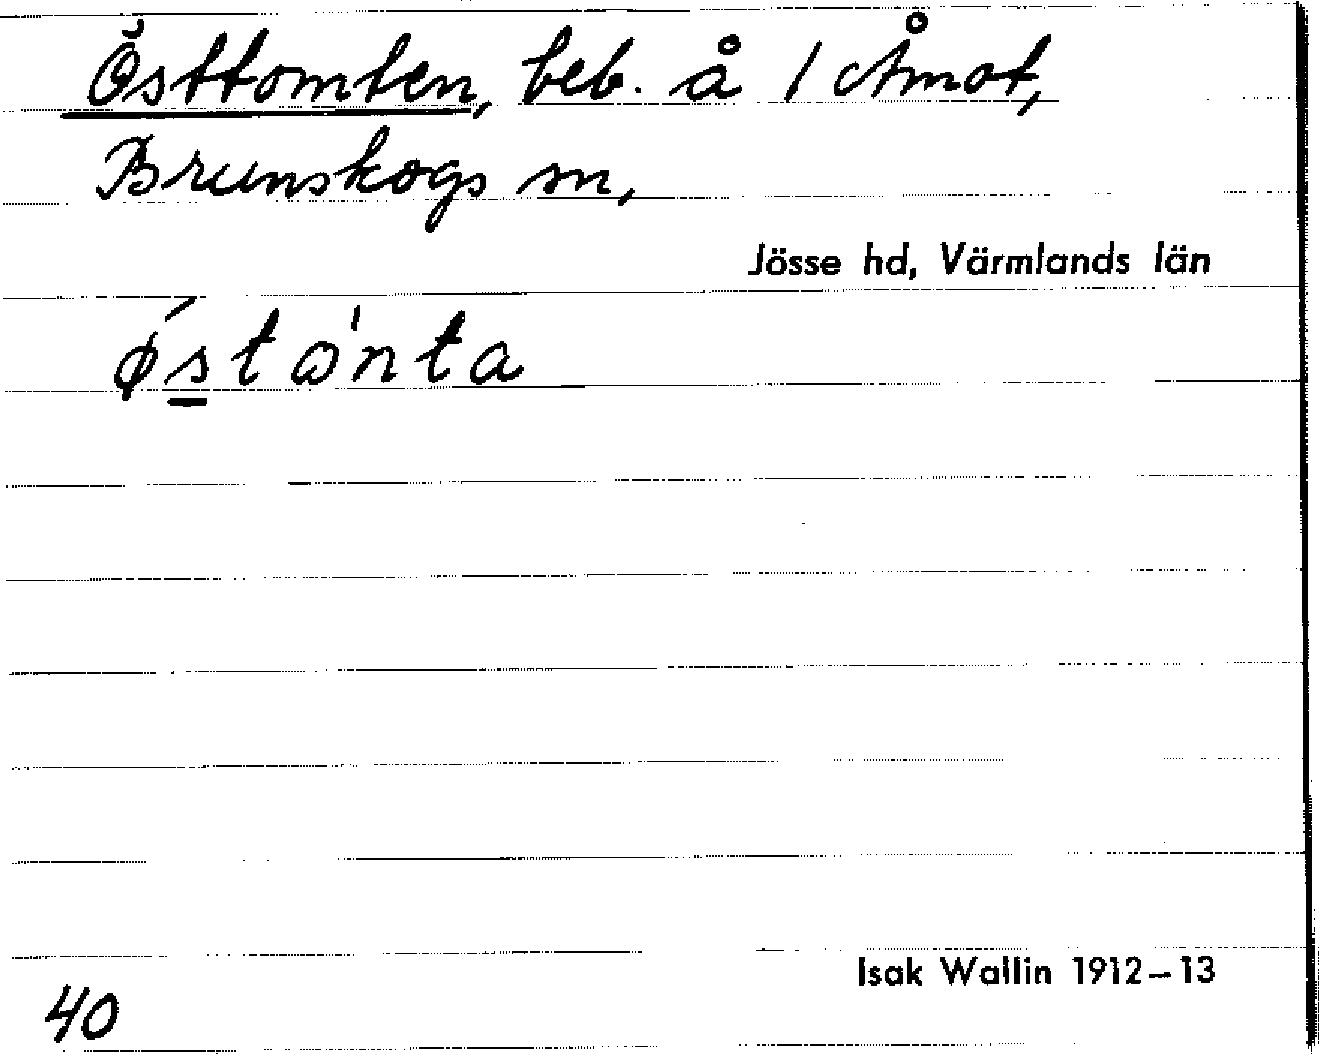 Östtomten, beb. å 1 Åmot,
Brunskogs sn,
Jösse hd, Värmlands län
ǿstⱷ̍nta
Isak Wallin 1912–13
40